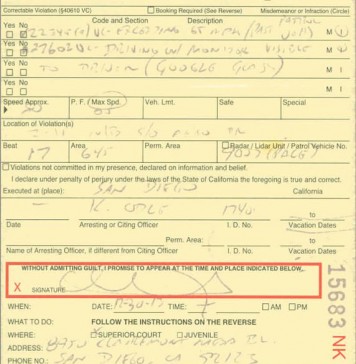 Correctable Violation (§40610 VC) Booking Required (See Reverse) Misdemeanor or Infraction (Circle)
Yes No Code and Section Description
M I
Yes No 27602 VC - DRIVING W/ MONITOR VISIBLE M I
Yes No TO DRIVER (GOOGLE GLASS) M I
Yes No M I
Speed Approx. P. F. / Max Spd. Veh. Lmt. Safe Special
65
Location of Violation(s)
I-15
Beat Area Perm. Area Radar / Lidar Unit / Patrol Vehicle No.
17 645
Violations not committed in my presence, declared on information and belief.
I declare under penalty of perjury under the laws of the State of California the foregoing is true and correct.
Executed at (place): SAN DIEGO California
K. to
Date Arresting or Citing Officer I. D. No. Vacation Dates
Perm. Area: to
Name of Arresting Officer, if different from Citing Officer I. D. No. Vacation Dates
WITHOUT ADMITTING GUILT, I PROMISE TO APPEAR AT THE TIME AND PLACE INDICATED BELOW.
X SIGNATURE
WHEN: DATE: TIME: AM PM
WHAT TO DO: FOLLOW THE INSTRUCTIONS ON THE REVERSE
WHERE: SUPERIOR COURT JUVENILE
ADDRESS: CLAIREMONT MESA BL.
PHONE NO.: SAN DIEGO, CA 92123
15683 NK